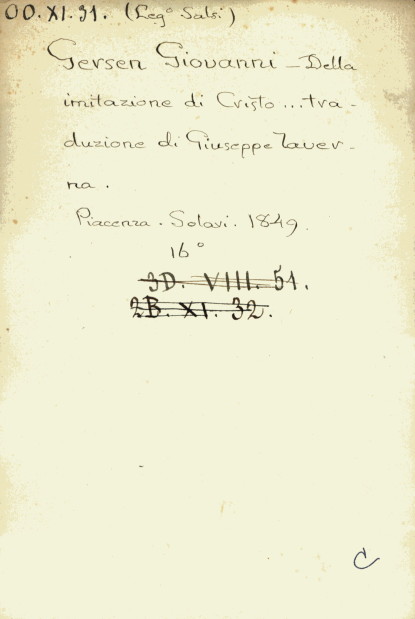 OO. XI. 31. (Leg° Salsi)
Gersen Giovanni - Della
imitazione di Cristo ... tra-
duzione di Giuseppe Taver-
na.
Piacenza. Solari. 1849.
16°
3D. VIII. 51.
2B. XI. 32.
C